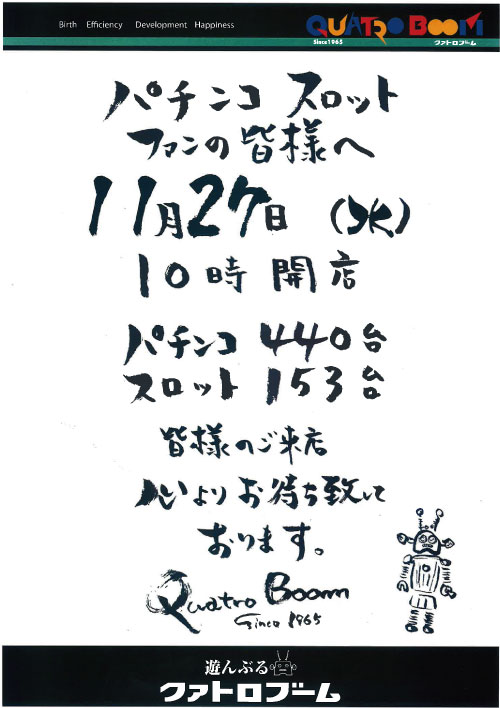 Birth Efficiency Development Happiness
QUATRO BOOM
Since1965 クァトロブーム
パチンコ スロット
ファンの皆様へ
11月27日(水)
10時開店
パチンコ 440台
スロット 153台
皆様のご来店
心よりお待ち致して
おります。
Quatro Boom
Since 1965
遊んぶる
クァトロブーム